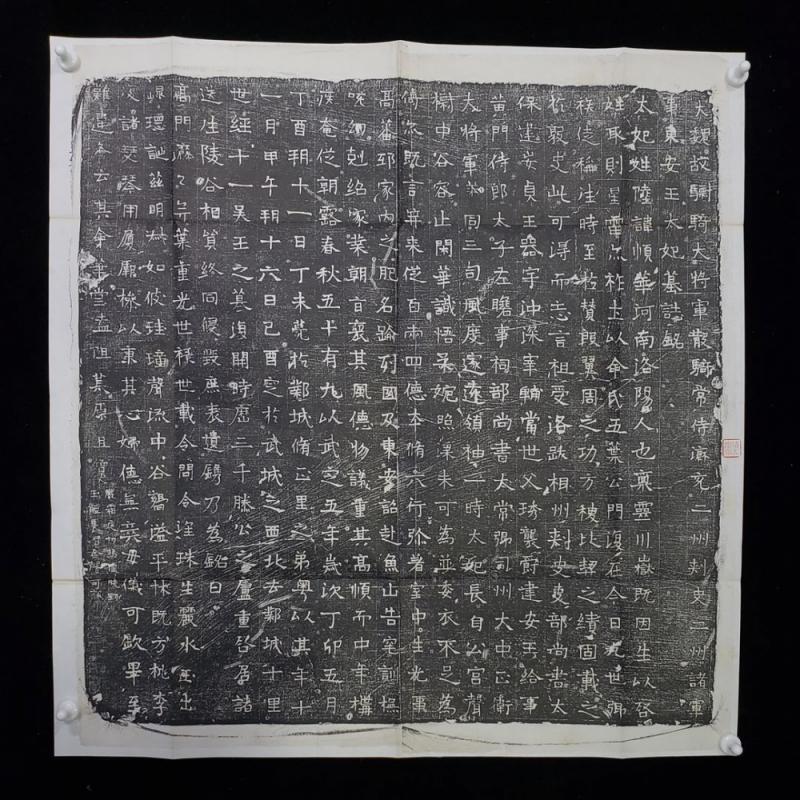 大魏故驃騎大將軍散騎常侍瀛兗二州刺史二州諸軍
事東安王太妃墓誌銘
太妃姓陸諱順華河南洛陽人也稟靈川嶽既因生以啓
姓取則星雷亦胙土以命氏五葉公門復在今日九世卿
族俟稱往時至於贊殷翼周之功方稷比契之績固載之
於觀史此可得而忘言祖受洛跋相州刺史吏部尚書太
保建安貞王器宇沖深宰輔當世父琇襲爵建安王給事
黃門侍郎太子左瞻事祠部尚書太常卿司州大中正衛
大將軍儀同三司風度遂遠領袖一時太妃長自公宮聲
樹中谷容止閑華識悟柔婉照凜未可為並委衣不足為
儔亦既言弃来從百兩四德本脩六行弥著室中生光軍
高蕃邦家內之肥名踰列國及東安詔赴魚山告窆訓撫
咳幼剋紹家業朝旨襃其風德物議重其高順而中年構
疾奄從朝露春秋五十有九以武定五年歲次丁卯五月
丁酉朔十一日丁未薨於鄴城脩正里之弟粵以其年十
一月甲午朔十六日己酉定於武城之西北去鄴城十里
世經十一吳王之墓復開時曆三千滕公之廬重啓居諸
迭往陵谷相貿終同傾毀無表遺鐫乃為銘曰
高門蔚々弈葉重光世祿世載令問令望珠生麗水玉出
崐瓌誕茲明淑如彼珪璋聲流中谷響溢平林既方桃李
又諸琴用屬廊櫟以東其心婦德無爽母儀可欽畢